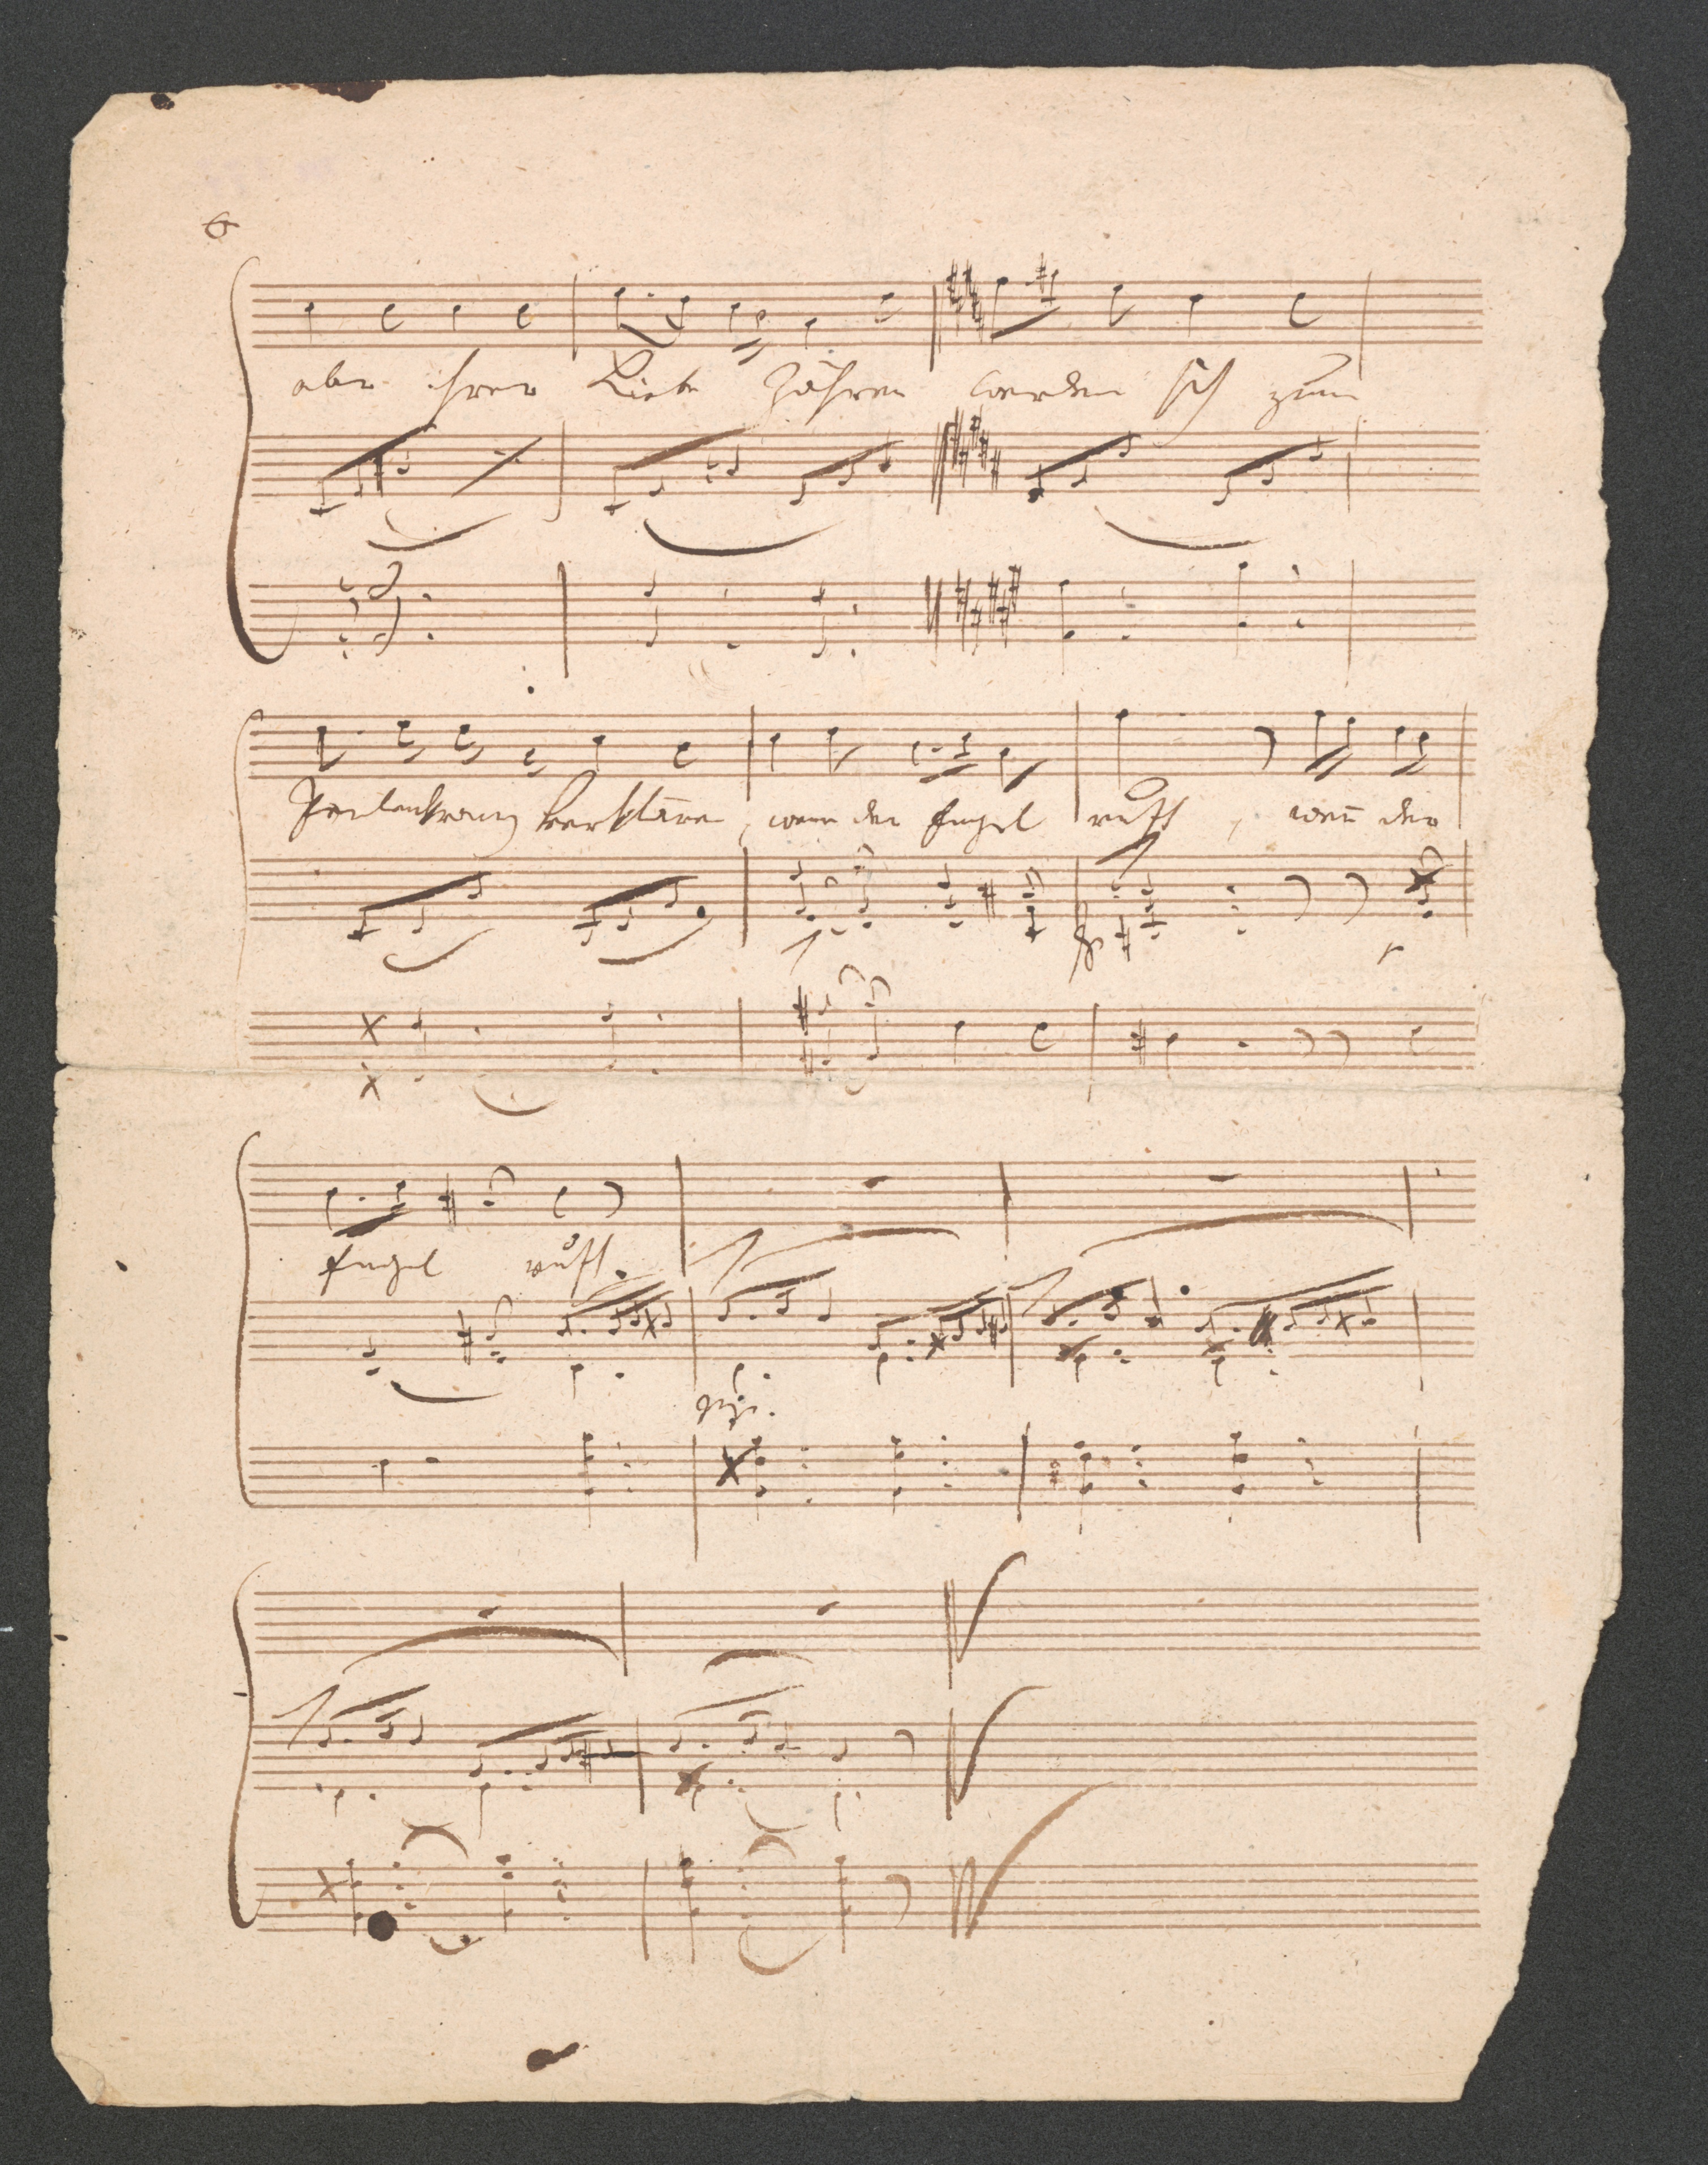 6
aber ihrer Liebe Zähren werden sich zum
Perlenkranz verklären, wenn der Engel ruft, wenn der
Engel ruft.